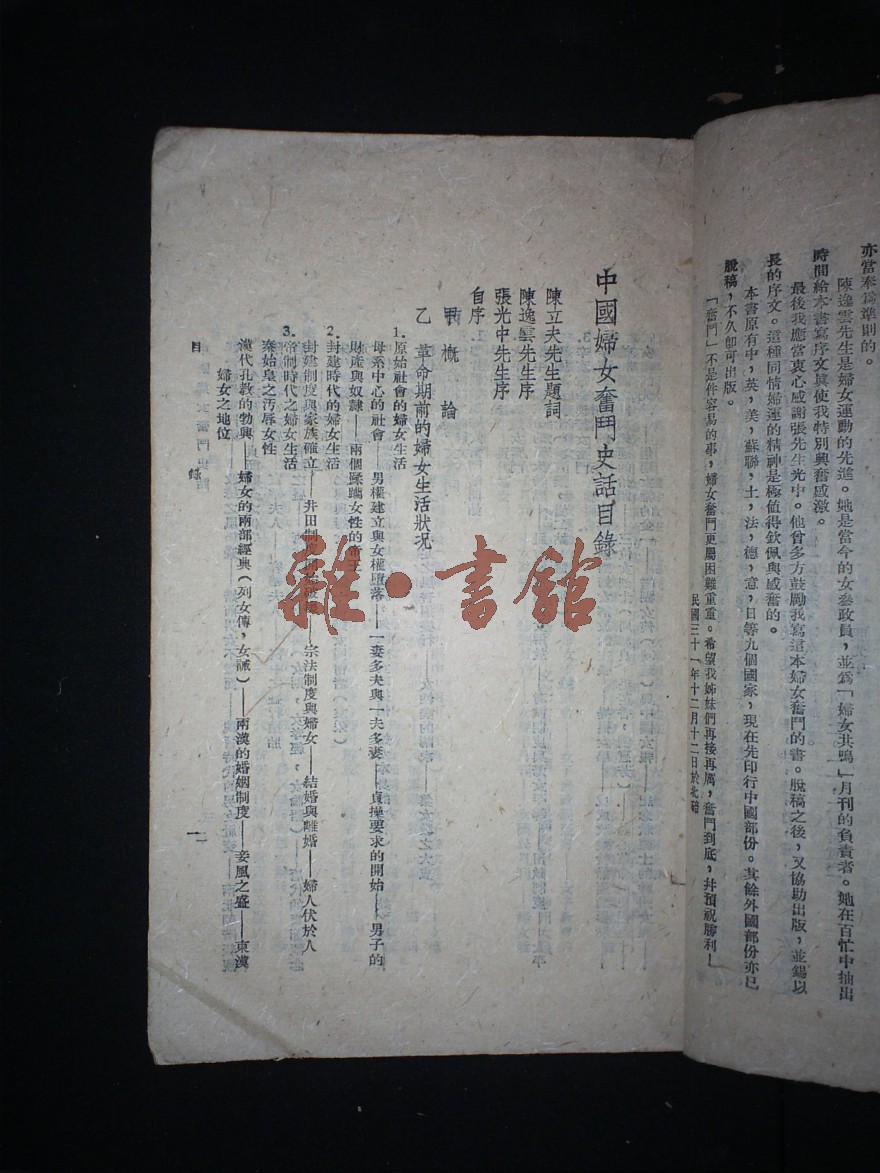 亦當奉爲準則的。
陳逸雲先生是婦女運動的先進。她是當今的女參政員，並爲「婦女共鳴」月刊的負責者。她在百忙中抽出
時間給本書寫序文與使我特別興奮感激。
最後我應當衷心感謝張先生光中。他曾多方鼓勵我寫這本婦女奮鬥的書。脫稿之後，又協助出版，並錫以
長的序文。這種同情婦運的精神是極值得欽佩與感奮的。
本書原有中，英，美，蘇聯，土，法，德，意，日等九個國家，現在先印行中國部份。其餘外國部份亦已
脫稿，不久卽可出版。
「奮鬥」不是件容易的事，婦女奮鬥更屬困難重重。希望我姊妹們再接再厲，奮鬥到底，幷預祝勝利！
民國三十一年十二月十二日於北碚
中國婦女奮鬥史話目錄
陳立夫先生題詞
陳逸雲先生序
張光中先生序
自序
甲 概論
乙 革命期前的婦女生活狀况
1. 原始社會的婦女生活
母系中心的社會——男權建立與女權墮落——一妻多夫與一夫多妻——貞操要求的開始——男子的
財產與奴隸——兩個蹂躪女性的帝王
2. 封建時代的婦女生活
封建制度與家族確立——井田制度——宗法制度與婦女——結婚與離婚——婦人伏於人
3. 帝制時代之婦女生活
秦始皇之汚辱女性
漢代孔教的勃興——婦女的兩部經典（列女傳，女誡）——兩漢的婚姻制度——妾風之盛——東漢
婦女之地位
目錄
一
雜·書館